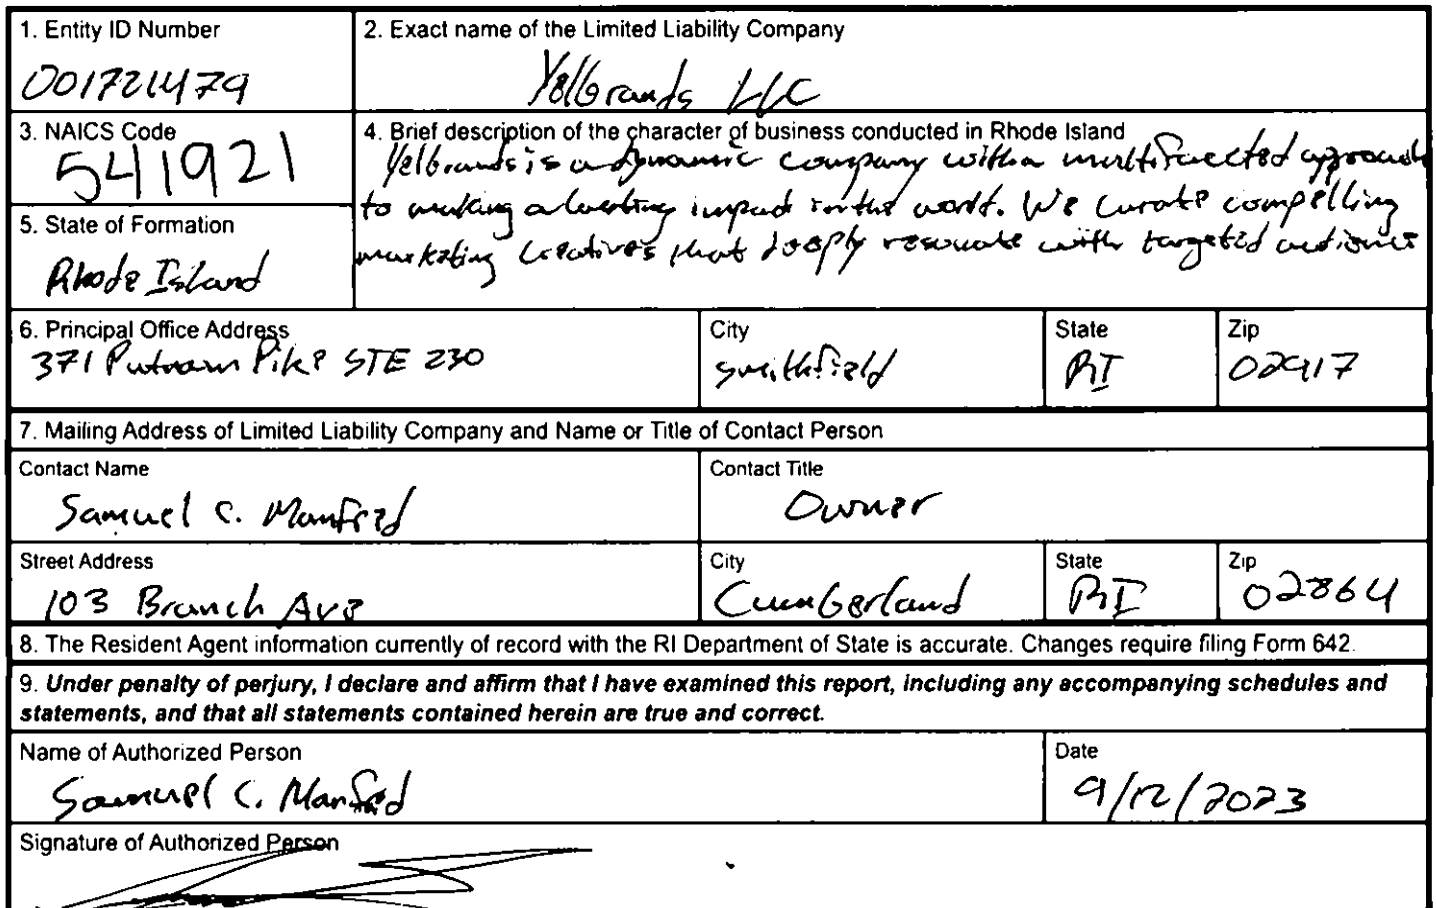 1. Entity ID Number
001721479
2. Exact name of the Limited Liability Company
Yelbrands LLC
3. NAICS Code
541921
4. Brief description of the character of business conducted in Rhode Island
Yelbrands is a dynamic company with a multifaceted approach
to making a lasting impact in the world. We curate compelling
marketing creatives that deeply resonate with targeted audience
5. State of Formation
Rhode Island
6. Principal Office Address
371 Putnam Pike STE 230
City
Smithfield
State
RI
Zip
02917
7. Mailing Address of Limited Liability Company and Name or Title of Contact Person
Contact Name
Samuel C. Manfred
Contact Title
Owner
Street Address
103 Branch Ave
City
Cumberland
State
RI
Zip
02864
8. The Resident Agent information currently of record with the RI Department of State is accurate. Changes require filing Form 642.
9. Under penalty of perjury, I declare and affirm that I have examined this report, including any accompanying schedules and
statements, and that all statements contained herein are true and correct.
Name of Authorized Person
Samuel C. Manfred
Date
9/12/2023
Signature of Authorized Person